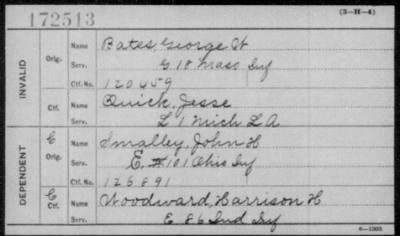 172513
(3-H-4)
INVALID
Orig.
Name Bates, George W
Serv. G 18 Mass Inf
Ctf. No. 120459
Ctf.
Name Quick, Jesse
Serv. L 1 Mich L A
DEPENDENT
C
Orig.
Name Smalley, John H
Serv. E 101 Ohio Inf
Ctf. No. 125891
C
Ctf.
Name Woodward, Harrison H
Serv. E 86 Ind Inf
6-1303